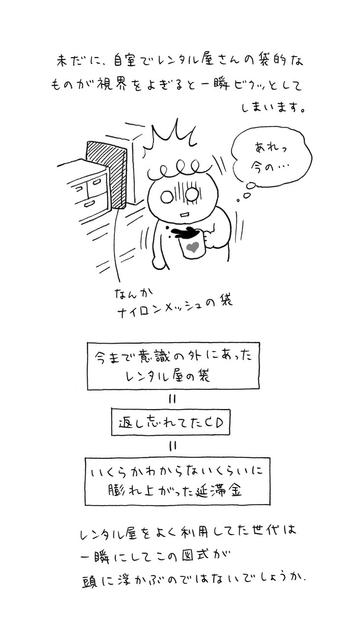 未だに、自室でレンタル屋さんの袋的な
ものが視界をよぎると一瞬ビクッとして
しまいます。
あれっ
今の…
なんか
ナイロンメッシュの袋
今まで意識の外にあった
レンタル屋の袋
=
返し忘れてたCD
=
いくらかわからないくらいに
膨れ上がった延滞金
レンタル屋をよく利用してた世代は
一瞬にしてこの図式が
頭に浮かぶのではないでしょうか.